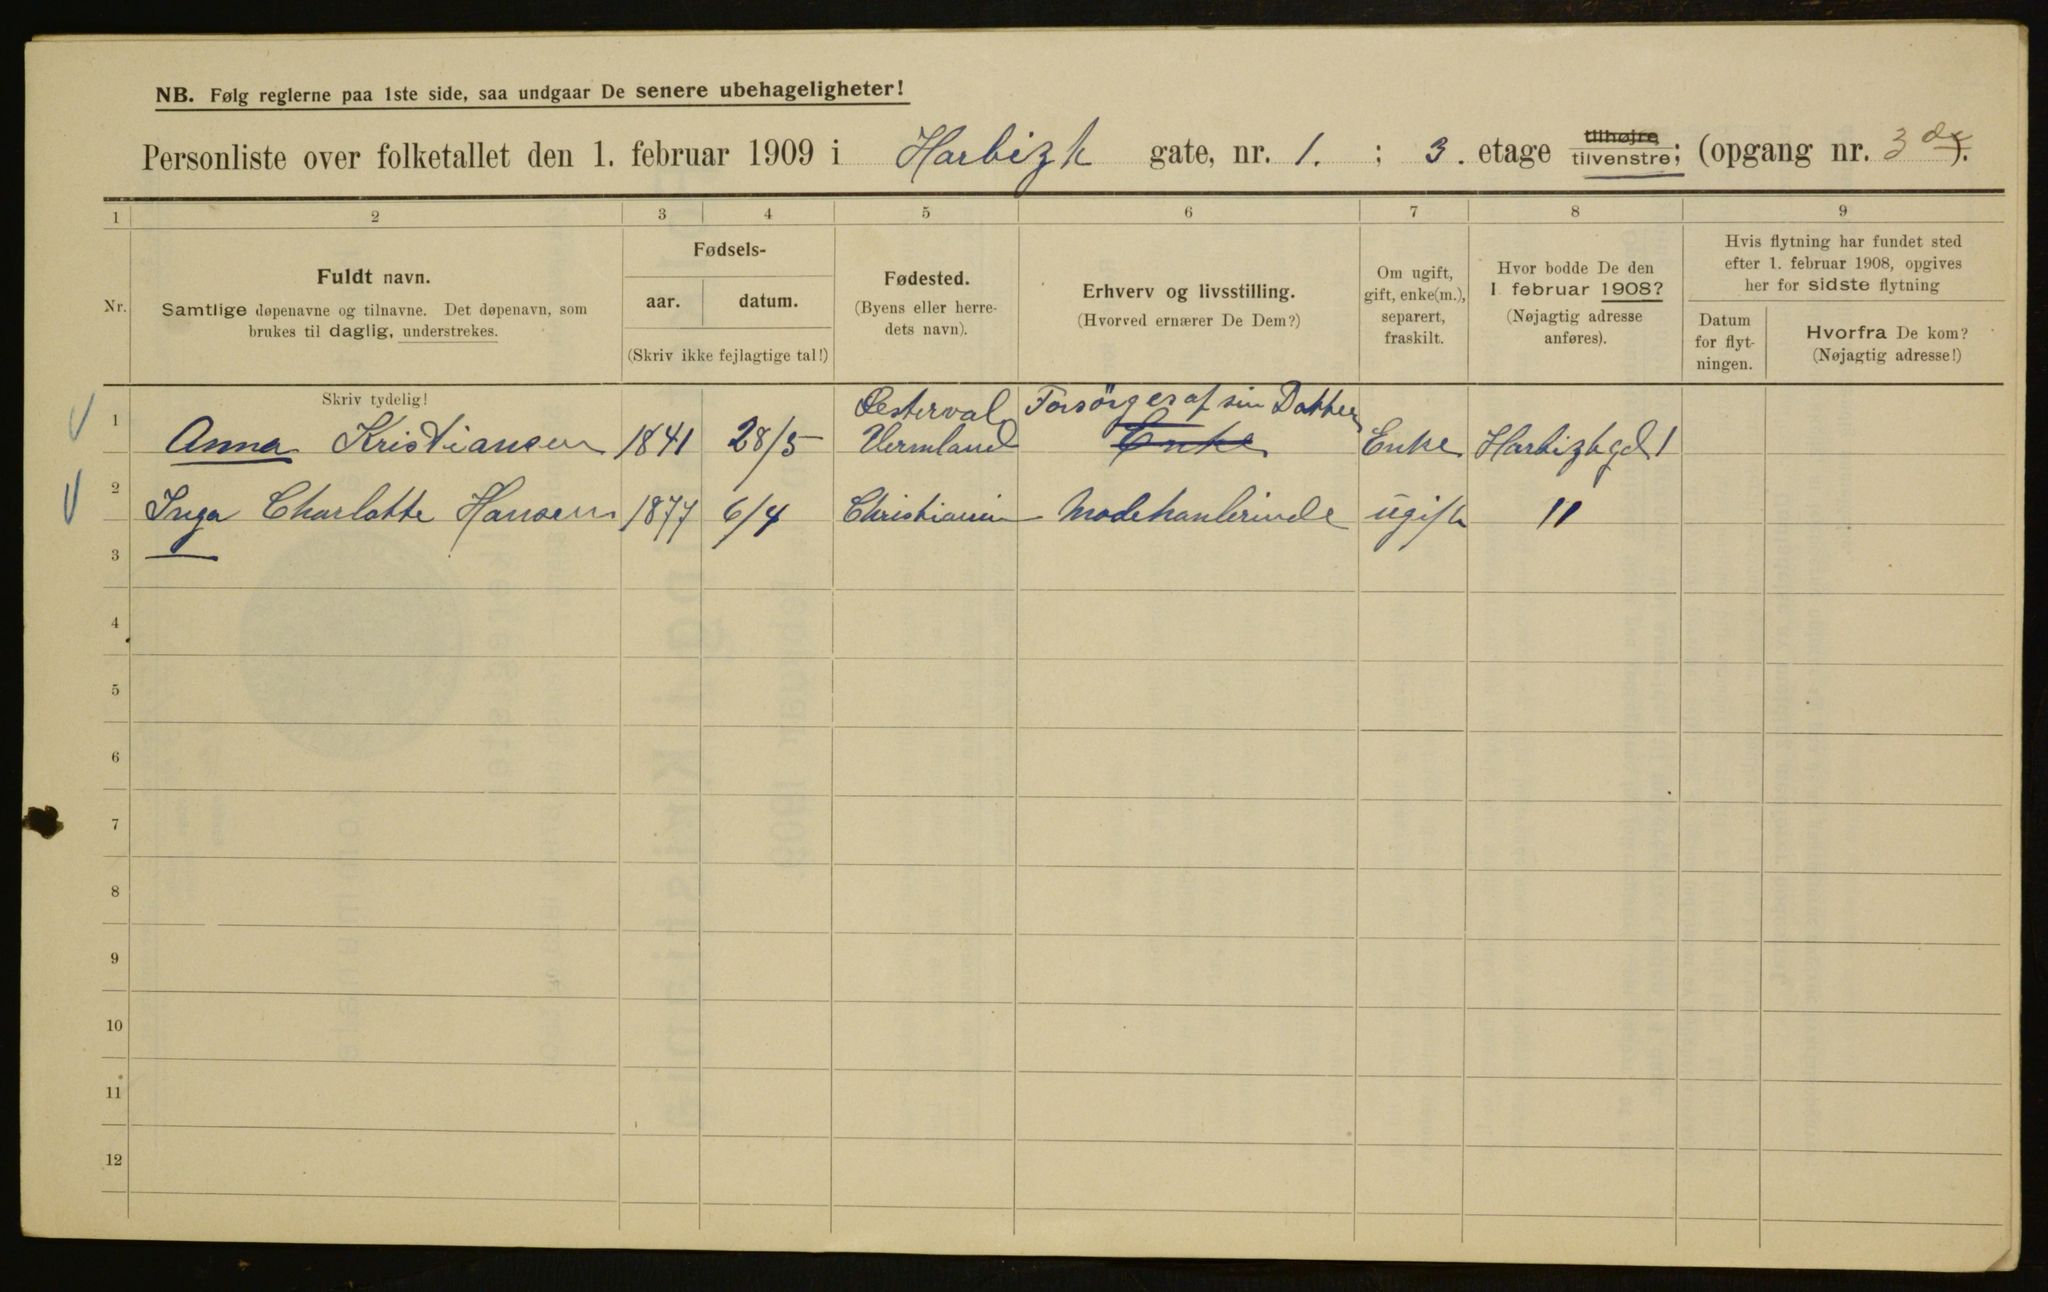 NB. Følg reglerne paa 1ste side, saa undgaar De senere ubehageligheter!
Personliste over folketallet den 1. februar 1909 i Harbizk gate, nr. 1. ; 3. etage tilhøjre, tilvenstre; (opgang nr. 3 ).
1 2 3 4 5 6 7 8 9
Nr.
Fuldt navn.
Samtlige døpenavne og tilnavne. Det døpenavn, som
brukes til daglig, understrekes.
Fødsels-
aar. datum.
(Skriv ikke fejlagtige tal!)
Fødested.
(Byens eller herre-
dets navn).
Erhverv og livsstilling.
(Hvorved ernærer De Dem?)
Om ugift,
gift, enke(m.),
separert,
fraskilt.
Hvor bodde De den
1. februar 1908?
(Nøjagtig adresse
anføres).
Hvis flytning har fundet sted
efter 1. februar 1908, opgives
her for sidste flytning
Datum
for flyt-
ningen.
Hvorfra De kom?
(Nøjagtig adresse!)
Skriv tydelig!
Østerval Forsörges af sin Datter
1 Anna Kristiansen 1841 28/5 Vermland Enke Enke Harbizkgd 1
2 Inga Charlotte Hansen 1877 6/4 Christiania Modehanlerinde ugift "
3
4
5
6
7
8
9
10
11
12